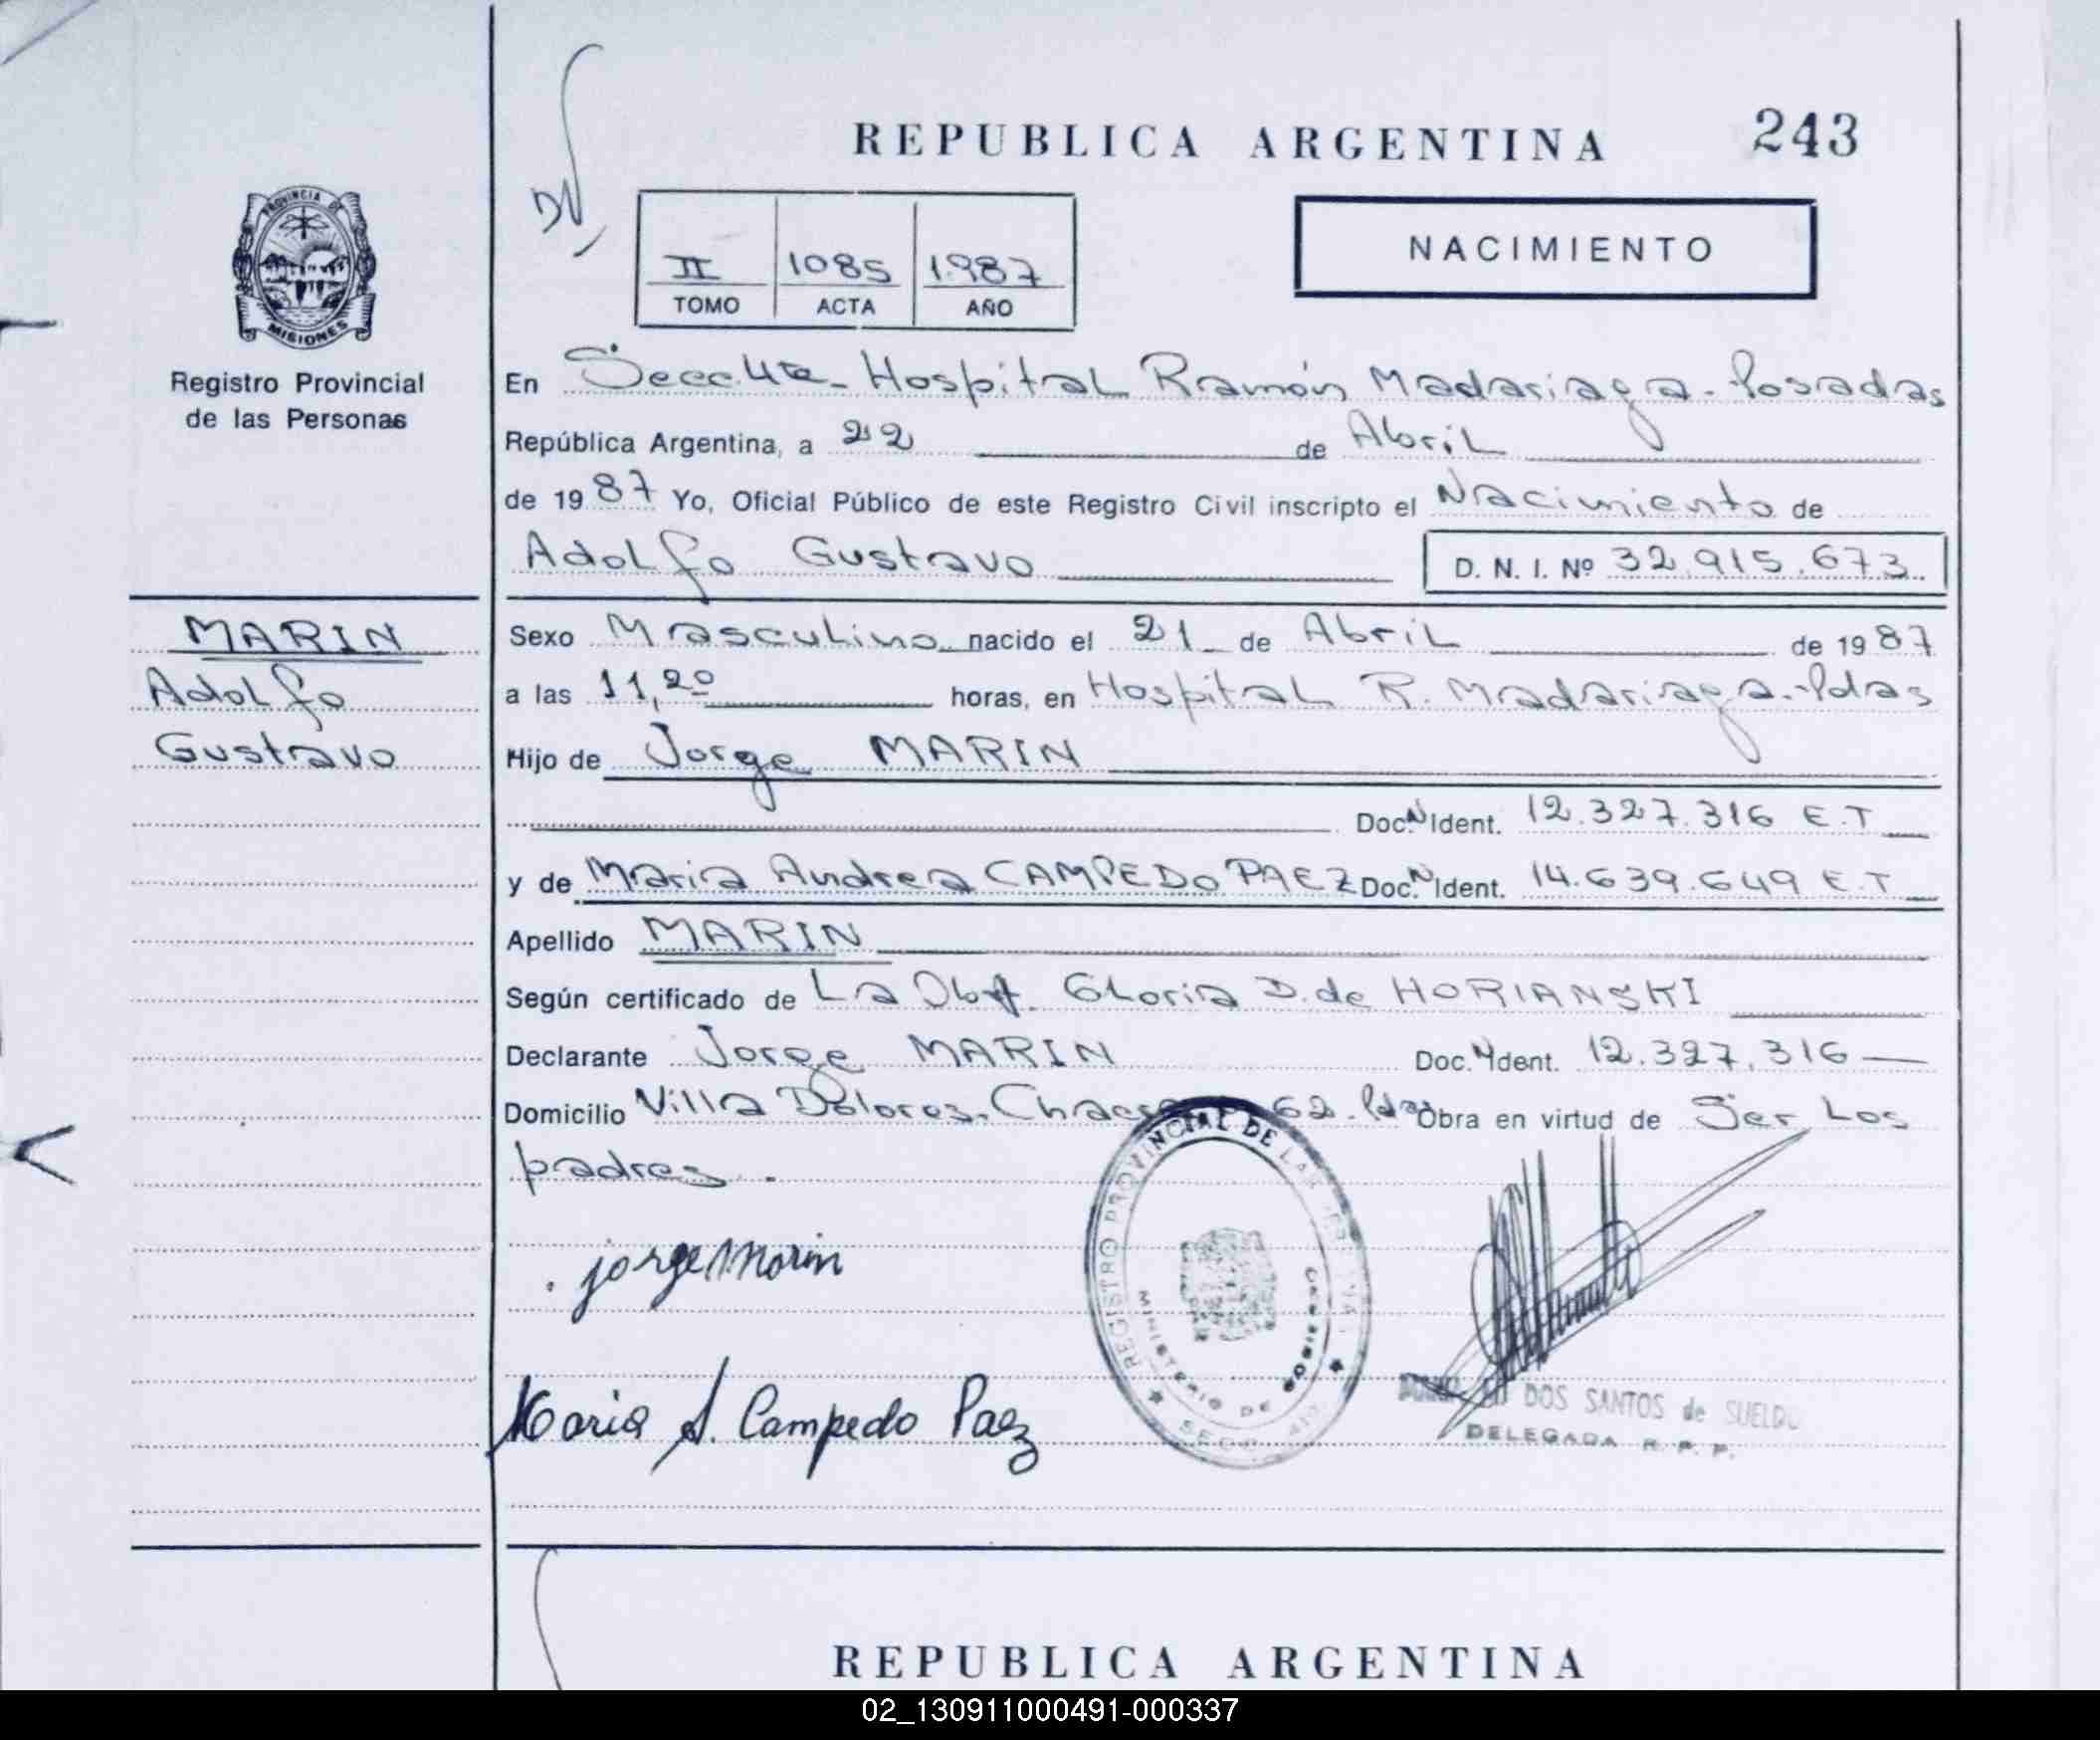 REPUBLICA ARGENTINA 243
PROVINCIA DE
MISIONES
Registro Provincial
de las Personas
II 1085 1.987
TOMO ACTA AÑO
NACIMIENTO
En Secc. 4ta - Hospital Ramón Madariaga - Posadas
República Argentina, a 22 de Abril
de 19 87 Yo, Oficial Público de este Registro Civil inscripto el Nacimiento de
Adolfo Gustavo D. N. I. Nº 32.915.673
MARIN
Adolfo
Gustavo
Sexo Masculino nacido el 21 de Abril de 19 87
a las 11,20 horas, en Hospital R. Madariaga - Pdas
Hijo de Jorge MARIN
Doc. N Ident. 12.327.316 E.T
y de Maria Andrea CAMPEDO PAEZ Doc. N Ident. 14.639.649 E.T
Apellido MARIN
Según certificado de La Obst. Gloria D. de HORIANSKI
Declarante Jorge MARIN Doc. N Ident. 12.327.316
Domicilio Villa Dolores. 62. Pdas Obra en virtud de Ser Los
padres.
jorge Marin
Maria A. Campedo Paez
REGISTRO PROVINCIAL DE LAS
MINISTERIO DE GOBIERNO
SECC.
DOS SANTOS de SUELDO
DELEGADA R. P. P.
REPUBLICA ARGENTINA
02_130911000491-000337